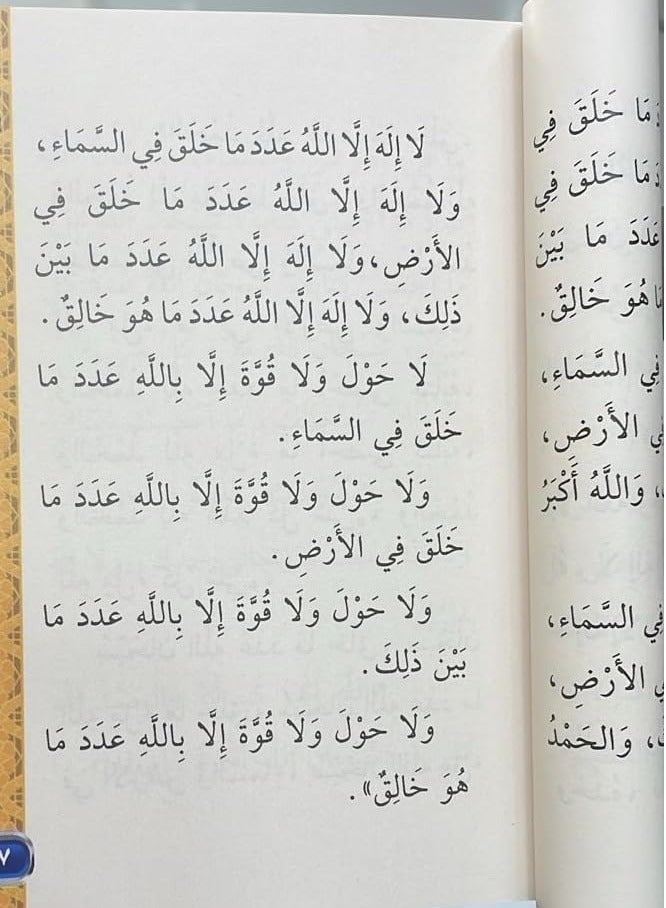 لَا إِلَهَ إِلَّا اللَّهُ عَدَدَ مَا خَلَقَ فِي السَّمَاءِ،
وَلَا إِلَهَ إِلَّا اللَّهُ عَدَدَ مَا خَلَقَ فِي
الأَرْضِ، وَلَا إِلَهَ إِلَّا اللَّهُ عَدَدَ مَا بَيْنَ
ذَلِكَ، وَلَا إِلَهَ إِلَّا اللَّهُ عَدَدَ مَا هُوَ خَالِقٌ.
لَا حَوْلَ وَلَا قُوَّةَ إِلَّا بِاللَّهِ عَدَدَ مَا
خَلَقَ فِي السَّمَاءِ.
وَلَا حَوْلَ وَلَا قُوَّةَ إِلَّا بِاللَّهِ عَدَدَ مَا
خَلَقَ فِي الأَرْضِ.
وَلَا حَوْلَ وَلَا قُوَّةَ إِلَّا بِاللَّهِ عَدَدَ مَا
بَيْنَ ذَلِكَ.
وَلَا حَوْلَ وَلَا قُوَّةَ إِلَّا بِاللَّهِ عَدَدَ مَا
هُوَ خَالِقٌ».
مَا خَلَقَ فِي
مَا خَلَقَ فِي
عَدَدَ مَا بَيْنَ
هُوَ خَالِقٌ.
فِي السَّمَاءِ،
الأَرْضِ،
وَاللَّهُ أَكْبَرُ
فِي السَّمَاءِ،
الأَرْضِ،
وَالحَمْدُ